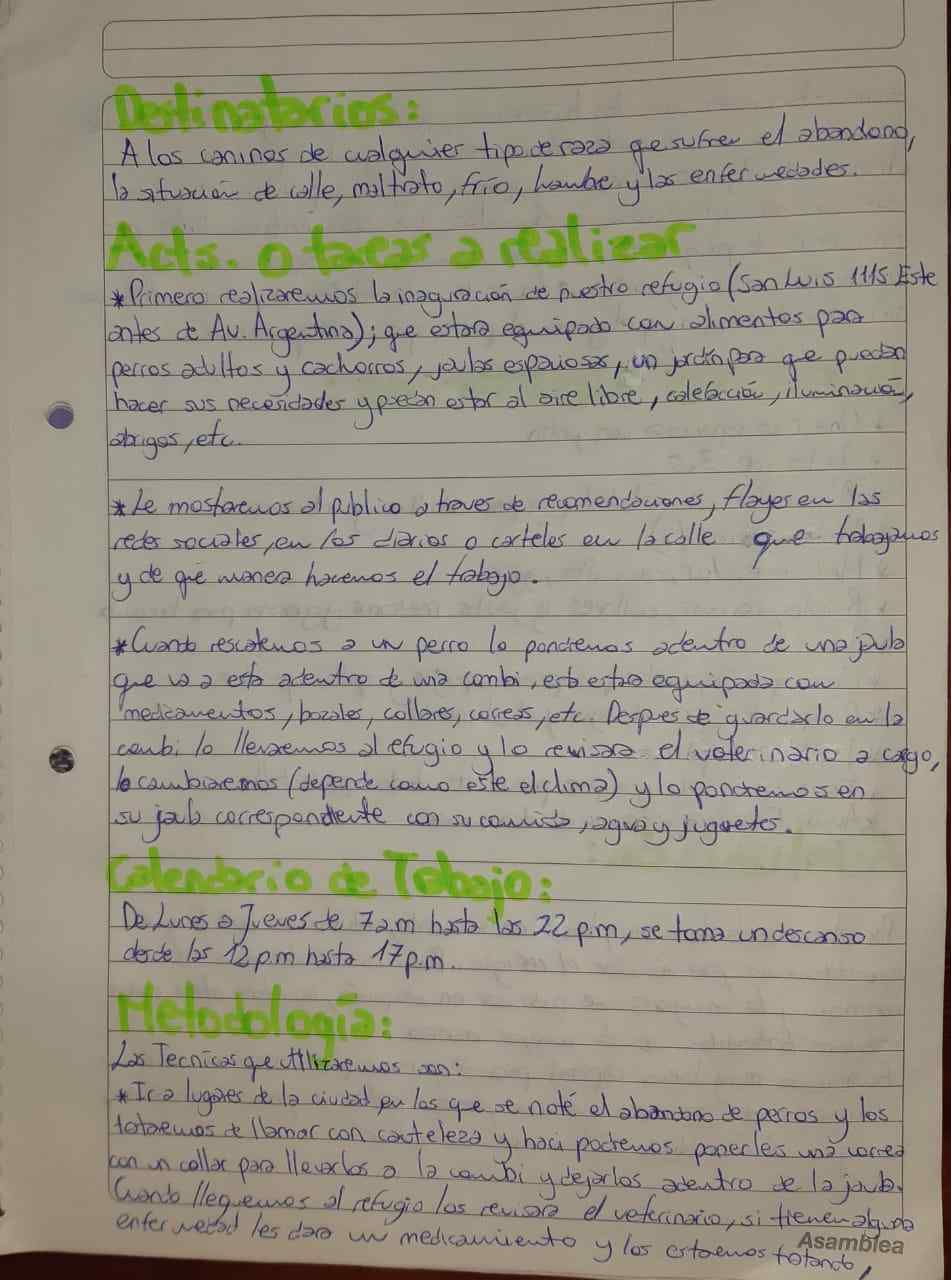 Destinatarios:
A los caninos de cualquier tipo de raza que sufren el abandono,
la situación de calle, maltrato, frío, hambre y las enfermedades.
Acts. o tareas a realizar
*Primero realizaremos la inaguración de nuestro refugio (San Luis 1115 Este
antes de Av. Argentina); que estara equipado con alimentos para
perros adultos y cachorros, jaulas espaciosas, un jardín para que puedan
hacer sus necesidades y puedan estar al aire libre, calefacción, iluminación,
abrigos, etc.
*Le mostraremos al público a traves de recomendaciones, flayes en las
redes sociales, en los diarios o carteles en la calle que trabajamos
y de que manera hacemos el trabajo.
*Cuando rescatemos a un perro lo pondremos adentro de una jaula
que va a esta adentro de una combi, esta estara equipada con
medicamentos, bozales, collares, correas, etc. Despues de guardarlo en la
combi lo llevaremos al refugio y lo revisara el veterinario a cargo,
lo cambiaremos (depende como este el clima) y lo pondremos en
su jaula correspondiente con su comida, agua y juguetes.
Calendario de Trabajo:
De Lunes a Jueves de 7 a.m hasta las 22 p.m, se toma un descanso
desde las 12 p.m hasta 17 p.m.
Metodología:
Las Tecnicas que utilizaremos son:
*Ir a lugares de la ciudad en los que se noté el abandono de perros y los
trataremos de llamar con cauteleza y haci podremos ponerles una correa
con un collar para llevarlos a la combi y dejarlos adentro de la jaula.
Cuando lleguemos al refugio los revisara el veterinario, si tienen alguna
enfermedad les dara un medicamiento y los estaremos tratando,
Asamblea